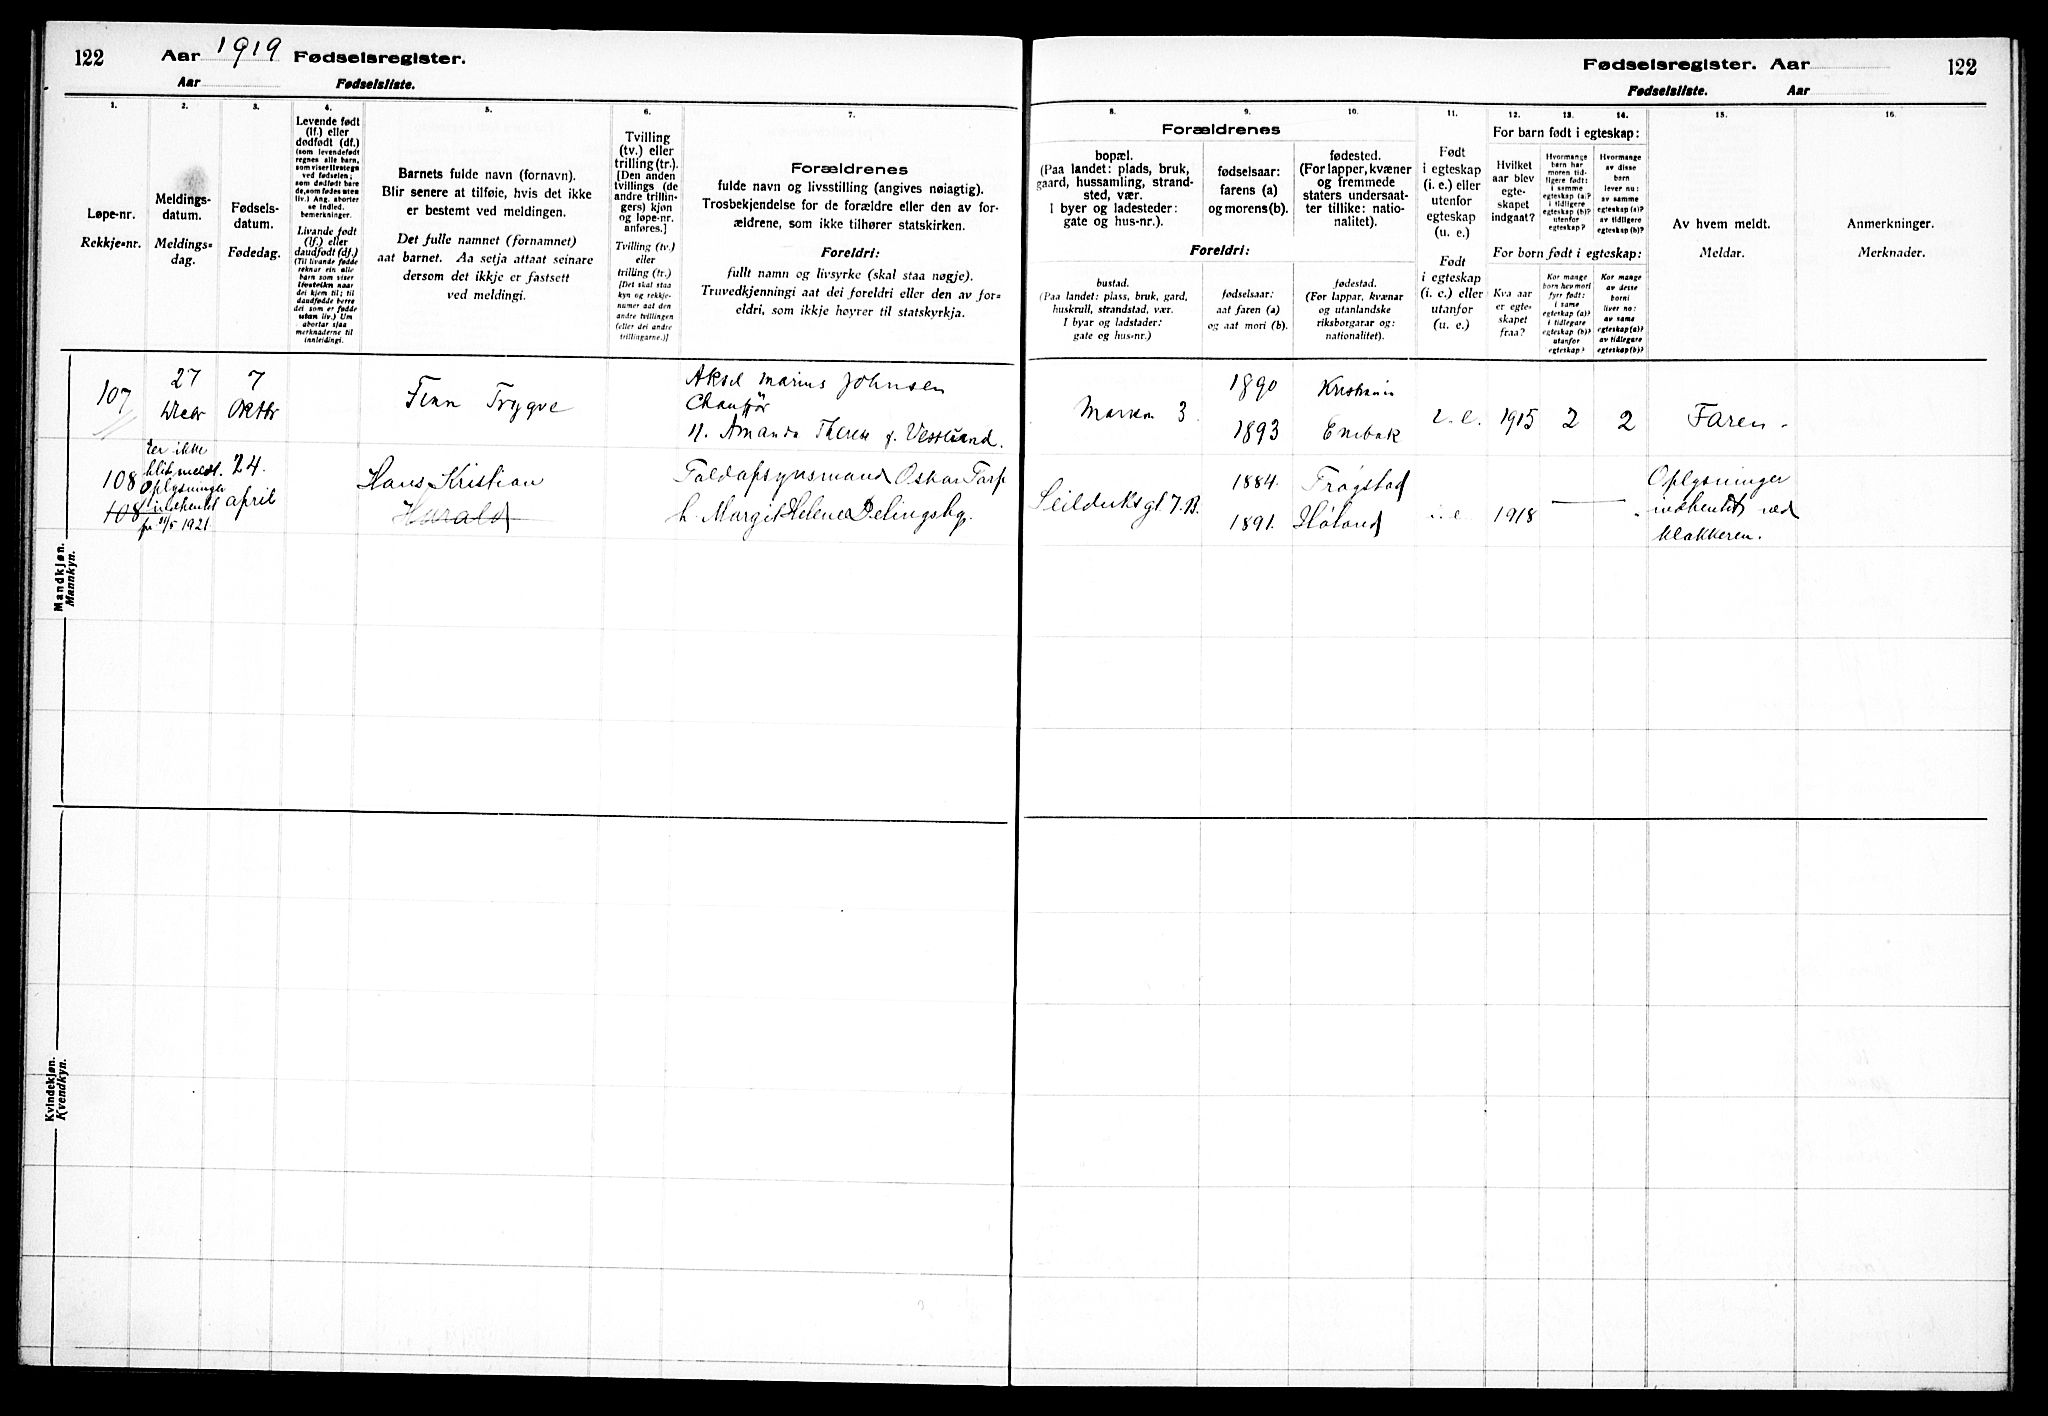 122
Aar 1919 Fødselsregister.
Aar Fødselsliste.
1.
2.
3.
4.
5.
6.
7.
Løpe-nr.
Rekkje-nr.
Meldings-
datum.
Meldings-
dag.
Fødsels-
datum.
Fødedag.
Levende født
(lf.) eller
dødfødt (df.)
(som levendefødt
regnes alle barn,
som viser livstegn
ved fødselen;
som dødfødt bare
de, som fødes uten
liv.) Ang. aborter
se indled.
bemerkninger.
Livande født
(lf.) eller
daudfødt (df.)
(Til livande fødde
reknar ein alle
barn som viser
lfvsteikn naar
dei kjem til; til
daudfødde berre
dei som er fødde
utan liv.) Um
abortar sjaa
merknaderne til
innleidingi.
Barnets fulde navn (fornavn).
Blir senere at tilføie, hvis det ikke
er bestemt ved meldingen.
Det fulle namnet (fornamnet)
aat barnet. Aa setja attaat seinare
dersom det ikkje er fastsett
ved meldingi.
Tvilling
(tv.) eller
trilling (tr.).
[Den anden
tvillings (de
andre trillin-
gers) kjøn
og løpe-nr.
anføres.]
Tvilling (tv.)
eller
trilling (tr.)
[Det skal staa
kyn og rekkje-
numer aat den
andre tvillingen
(eller dei andre
trillingarne.)]
Forældrenes
fulde navn og livsstilling (angives nøiagtig).
Trosbekjendelse for de forældre eller den av for-
ældrene, som ikke tilhører statskirken.
Foreldri:
fullt namn og livsyrke (skal staa nøgje).
Truvedkjenningi aat dei foreldri eller den av for-
eldri, som ikkje høyrer til statskyrkja.
Mandkjøn.
Mannkyn.
107
27
Decbr
7
Oktbr
Finn Trygve
Aksel Marius Johnsen
Chauffør
H. Amanda Therese f. Vestlund.
108
108
Er ikke
blit meldt.
Oplysninger
indhentet
fr 31/5 1921.
24.
april
Hans Kristian
Harald
Toldopsynsmand Oskar Torp
h. Margit Helene Delingsbg.
Kvindekjøn.
Kvendkyn.
Fødselsregister. Aar
122
Fødselsliste. Aar
8.
9.
10.
11.
12.
13.
14.
15.
16.
Forældrenes
bopæl.
(Paa landet: plads, bruk,
gaard, hussamling, strand-
sted, vær.
I byer og ladesteder:
gate og hus-nr.).
fødselsaar:
farens (a)
og morens (b).
fødested.
(For lapper, kvæner
og fremmede
staters undersaat-
ter tillike: natio-
nalitet).
Foreldri:
bustad.
(Paa landet: plass, bruk, gard,
huskrull, strandstad, vær.
I byar og ladstader:
gate og hus-nr.)
fødselsaar:
aat faren (a)
og aat mori (b).
fødestad.
(For lappar, kvænar
og utanlandske
riksborgarar og:
nationalitet).
Født
i egteskap
(i. e.) eller
utenfor
egteskap
(u. e.)
Født
i egteskap
(i. e.) eller
utanfor
(u. e.)
For barn født i egteskap:
Hvilket
aar blev
egte-
skapet
indgaat?
Hvormange
barn har
moren tid-
ligere født:
i samme
egteskap (a)?
i tidligere
egteskap (b)?
utenfor
egteskap?
Hvormange
av disse
barn
lever nu:
av samme
egteskap (a)?
av tidligere
egteskap (b)?
For born født i egteskap:
Kva aar
er egte-
skapet
fraa?
Kor mange
born hev mori
fyrr født:
i same
egteskap (a)?
i tidlegare
egteskap (b)?
utanfor
egteskap?
Kor mange
av desse
borni
liver no:
av same
egteskap (a)?
av tidlegare
egteskap (b)?
Av hvem meldt.
Meldar.
Anmerkninger.
Merknader.
Markvn 3
1890
1893
Kristiania
Enebak
i. e.
1915
2
2
Faren.
Seilduksgt 7.B.
1884.
1891.
Trøgstad
Høland
i. e.
1918
Oplysninger
indhentet ved
klokkeren.